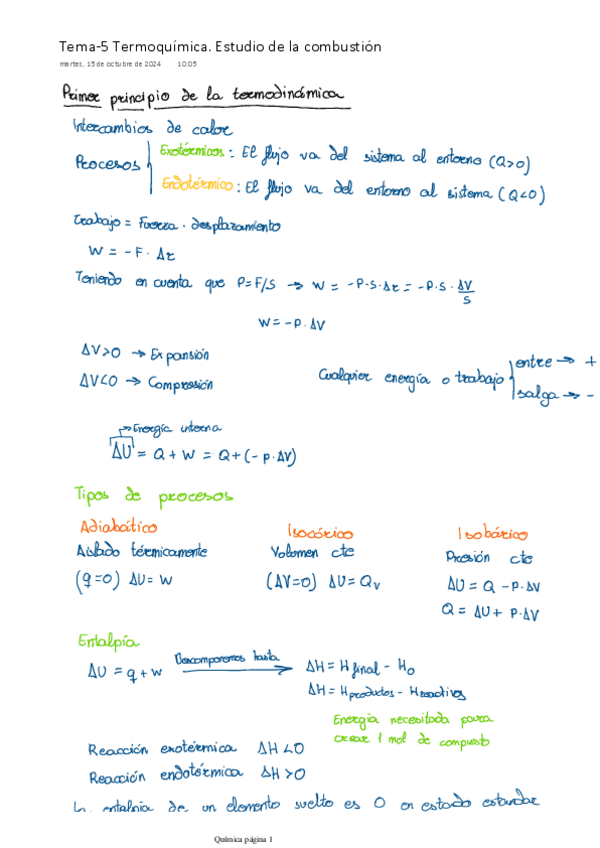 Tema-5 Termoquímica. Estudio de la combustión
martes, 15 de octubre de 2024 10:05
Primer principio de la termodinámica
Intercambios de calor
Procesos
Exotérmicos: El flujo va del sistema al entorno (Q>0)
Endotérmico: El flujo va del entorno al sistema (Q<0)
Trabajo = Fuerza · desplazamiento
W = -F · Δr
Teniendo en cuenta que P=F/S → W = -P·S·Δr = -P·S · ΔV/S
W = -P·ΔV
ΔV>0 → Expansión
ΔV<0 → Compresión
Cualquier energía o trabajo
entre → +
salga → -
Energía interna
ΔU = Q + W = Q + (-p·ΔV)
Tipos de procesos
Adiabático Isocórico Isobárico
Aislado térmicamente Volumen cte Presión cte
(q=0) ΔU = W (ΔV=0) ΔU = Qv ΔU = Q - P·ΔV
Q = ΔU + P·ΔV
Entalpía
ΔU = q + w Descomponemos hasta → ΔH = Hfinal - H0
ΔH = Hproductos - Hreactivos
Energía necesitada para
crear 1 mol de compuesto
Reacción exotérmica ΔH<0
Reacción endotérmica ΔH>0
La entalpia de un elemento suelto es 0 en estado estandar
Química página 1